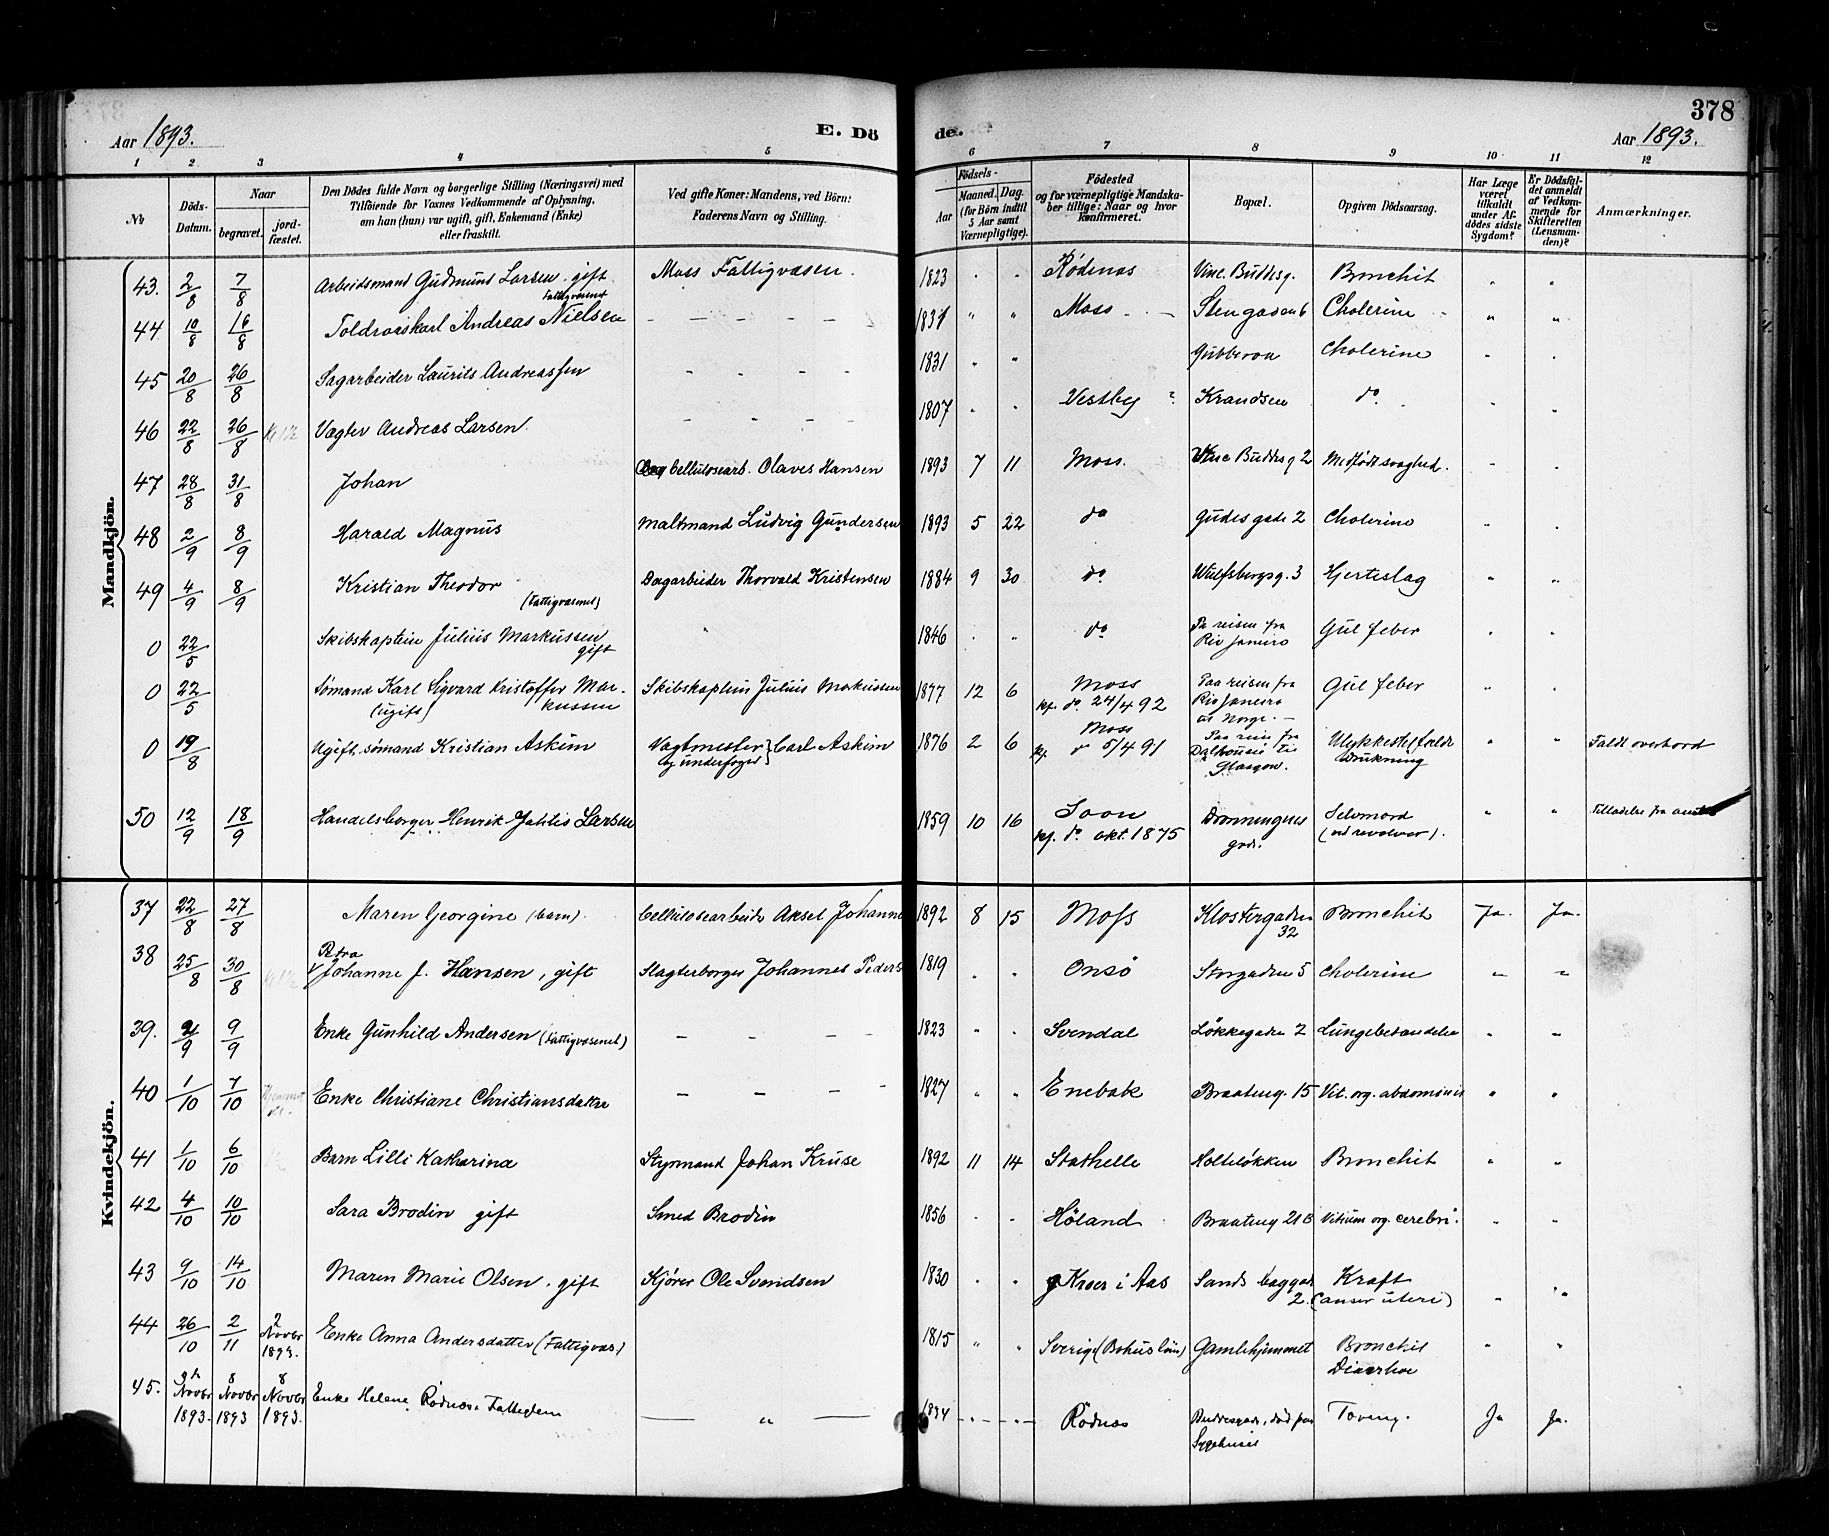 378
Aar 1893.
E. Dö
de.
Aar 1893.
1 2 3 4 5 6 7 8 9 10 11 12
№
Döds-Datum.
Naar
begravet.
jord-fæstet.
Den Dödes fulde Navn og borgerlige Stilling (Næringsvei) med
Tilföiende for Voxnes Vedkommende af Oplysning,
om han (hun) var ugift, gift, Enkemand (Enke)
eller fraskilt.
Ved gifte Koner: Mandens, ved Börn:
Faderens Navn og Stilling.
Födsels-
Aar
Maaned. Dag.
(for Börn indtil
5 Aar samt
Værnepligtige).
Födested
og for værnepligtige Mandska-
ber tillige: Naar og hvor
konfirmeret.
Bopæl.
Opgiven Dödsaarsag.
Har Læge
været
tilkaldt
under Af-
dödes sidste
Sygdom?
Er Dödsfal-
det anmeldt
af Vedkom-
mende for
Skifteretten
(Lensman-
den)?
Anmærkninger.
Mandkjön.
43. 2/8 7/8 Arbeidsmand Gudmund Larsen. gift Moss Fattigvæsen. 1823 Rødenæs Vinc. Buddesg. Bronchit
Fattigvæsenet
44 10/8 16/8 Toldroerskarl Andreas Nielsen 1831 Moss Stengaden 6 Cholerine
45 20/8 26/8 Sagarbeider Laurits Andreassen 1831 Gubberoa Cholerine
46 22/8 26/8 Vægter Andreas Larsen. 1807 Vestby ? Krandsen do.
47 28/8 31/8 Johan Cellulosearb. Olaves Hansen 1893 7 11 Moss. Vinc Buddesg 2 Medfødt svaghed.
48 2/9 8/9 Harald Magnus Maltmand Ludvig Gundersen 1893 5 22 do Gudesgade 2 Cholerine
49 4/9 8/9 Kristian Theodor Dagarbeider Thorvald Kristensen 1884 9 30 do Wulfsbergsg. 3 Hjerteslag
(Fattigvæsenet)
0 22/5 Skibskaptein Julius Markussen gift 1846 do Pa reisen fra Rio Janeiro Gul feber
0 22/5 Sømand Karl Sigvard Kristoffer Markussen (ugift) Skibskaptein Julius Markussen 1877 12 6 Moss kf. do. 24/4 92 Paa reisen fra Rio Janeiro til Norge. Gul feber
0 19/8 Ugift sømand Kristian Askim Vagtmester og underfoged Carl Askim 1876 2 6 Moss kf. 5/4 91 Paa reise fra Dalhousie til Glasgow. Ulykkestilfælde Drukning Faldt overbord
50 12/9 18/9 Handelsborger Henrik Larsen 1859 10 16 Soon kf. do. okt. 1875 Dronningens gade. Selvmord (ved revolver). Tilladelse fra
Kvindekjön.
37 22/8 27/8 Maren Georgine (barn) Cellulosearbeider Aksel Johanne 1892 8 15 Moss Klostergaden 32 Bronchit Ja. Ja.
38 25/8 30/8 Petra Johanne J. Hansen, gift Slagterborger Johannes Peders 1819 Onsø Storgaden 5 Cholerine
39. 2/9 9/9 Enke Gunhild Andersen (Fattigvæsenet) 1823 Svendal Løkkegaden 2 Lungebetændelse
40 1/10 7/10 Enke Christiane Christiansdatter 1827 Enebak Braateng. 15 Vit. org. abdominis
41 1/10 6/10 Barn Lilli Katharina Styrmand Johan Kruse 1892 11 14 Stathelle Holteløkken Bronchit
42 4/10 10/10 Sara Brodin gift Smed Brodin 1856 Høland Braateng 21 B Vitium org. cerebri.
43 9/10 14/10 Maren Marie Olsen. gift Kjører Ole Svendsen 1830 Kroer i Aas Sands baggade 2. Kræft (Cancer uteri)
44 26/10 2/11 2 Novbr 1893. Enke Anna Andersdatter (Fattigvæs.) 1815 Sverige (Bohuslän) Gamlehjemmet Bronchit Diarrhoe
45. Novbr 1893. 8 Novbr 1893 8 Novbr 1893. Enke Helene Rødnæs Fattiglem 1834 Rødnæs død paa Sygehuset Tæring. Ja Ja.